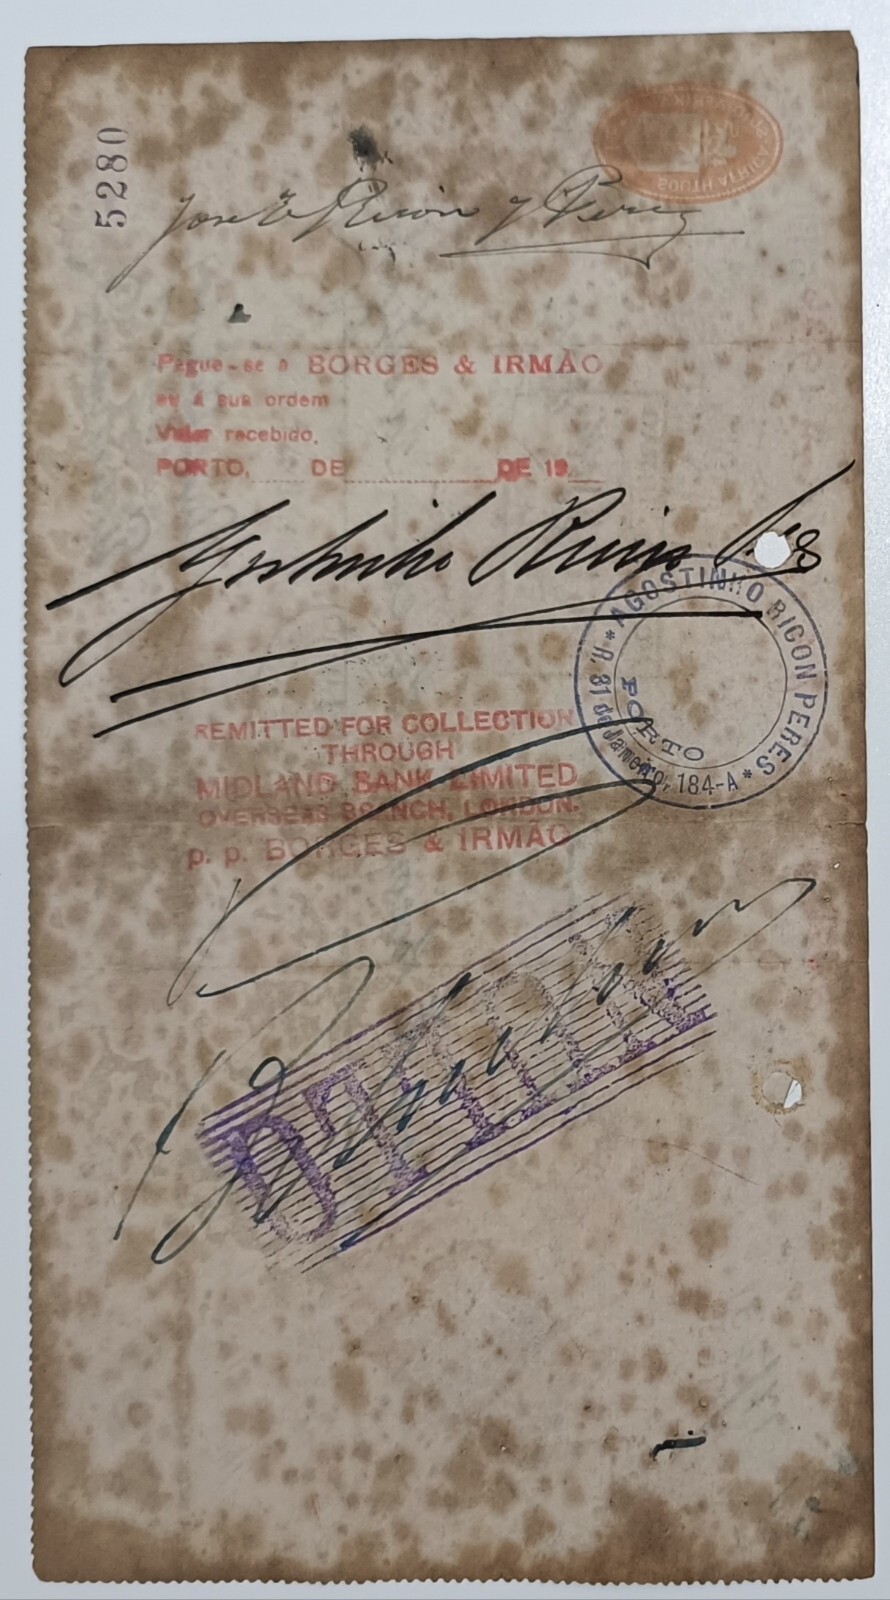 5280
SOUTH AFRICA
José E Ricón y Perez
Pague-se a BORGES & IRMÃO
ou á sua ordem
Valor recebido,
PORTO, DE DE 19
Agostinho Ricon Peres
AGOSTINHO RICON PERES
* R. 31 de Janeiro, 184-A *
PORTO
REMITTED FOR COLLECTION
THROUGH
MIDLAND BANK LIMITED
OVERSEAS BRANCH, LONDON.
p. p. BORGES & IRMÃO